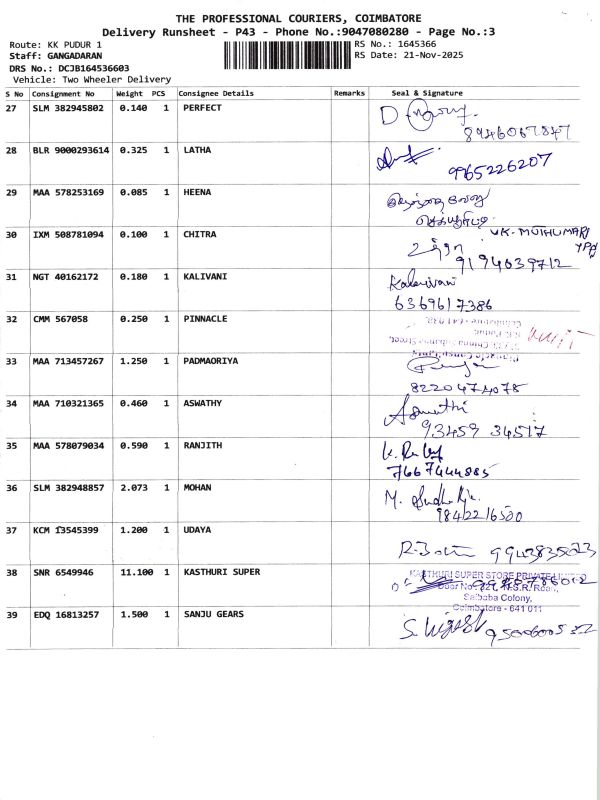 THE PROFESSIONAL COURIERS, COIMBATORE
Delivery Runsheet - P43 - Phone No.:9047080280 - Page No.:3
Route: KK PUDUR 1 RS No.: 1645366
Staff: GANGADARAN RS Date: 21-Nov-2025
DRS No.: DCJB164536603
Vehicle: Two Wheeler Delivery
S No Consignment No Weight PCS Consignee Details Remarks Seal & Signature
27 SLM 382945802 0.140 1 PERFECT
8946067847
28 BLR 9000293614 0.325 1 LATHA
9965226207
29 MAA 578253169 0.085 1 HEENA
30 IXM 508781094 0.100 1 CHITRA VK. MUTHUMARI
9194039712
31 NGT 40162172 0.180 1 KALIVANI Kalaivani
6369617386
32 CMM 567058 0.250 1 PINNACLE
33 MAA 713457267 1.250 1 PADMAORIYA
8220474078
34 MAA 710321365 0.460 1 ASWATHY Aswathi
93459 34517
35 MAA 578079034 0.590 1 RANJITH
7667444885
36 SLM 382948857 2.073 1 MOHAN
9842216500
37 KCM 13545399 1.200 1 UDAYA
38 SNR 6549946 11.100 1 KASTHURI SUPER KASTHURI SUPER STORE PRIVATE LIMITED
N.S.R. Road,
Saibaba Colony,
Coimbatore - 641 011
39 EDQ 16813257 1.500 1 SANJU GEARS